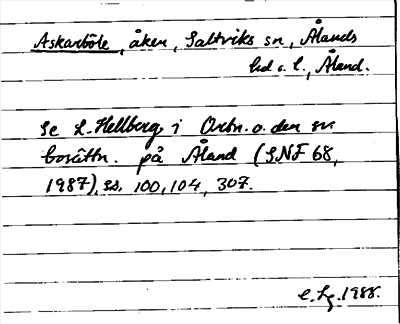 Askarböle, åker, Saltviks sn, Ålands
hd o. l., Åland.
Se L. Hellberg i Ortn. o. den sv.
bosättn. på Åland (SNF 68,
1987), ss. 100, 104, 307.
1988.